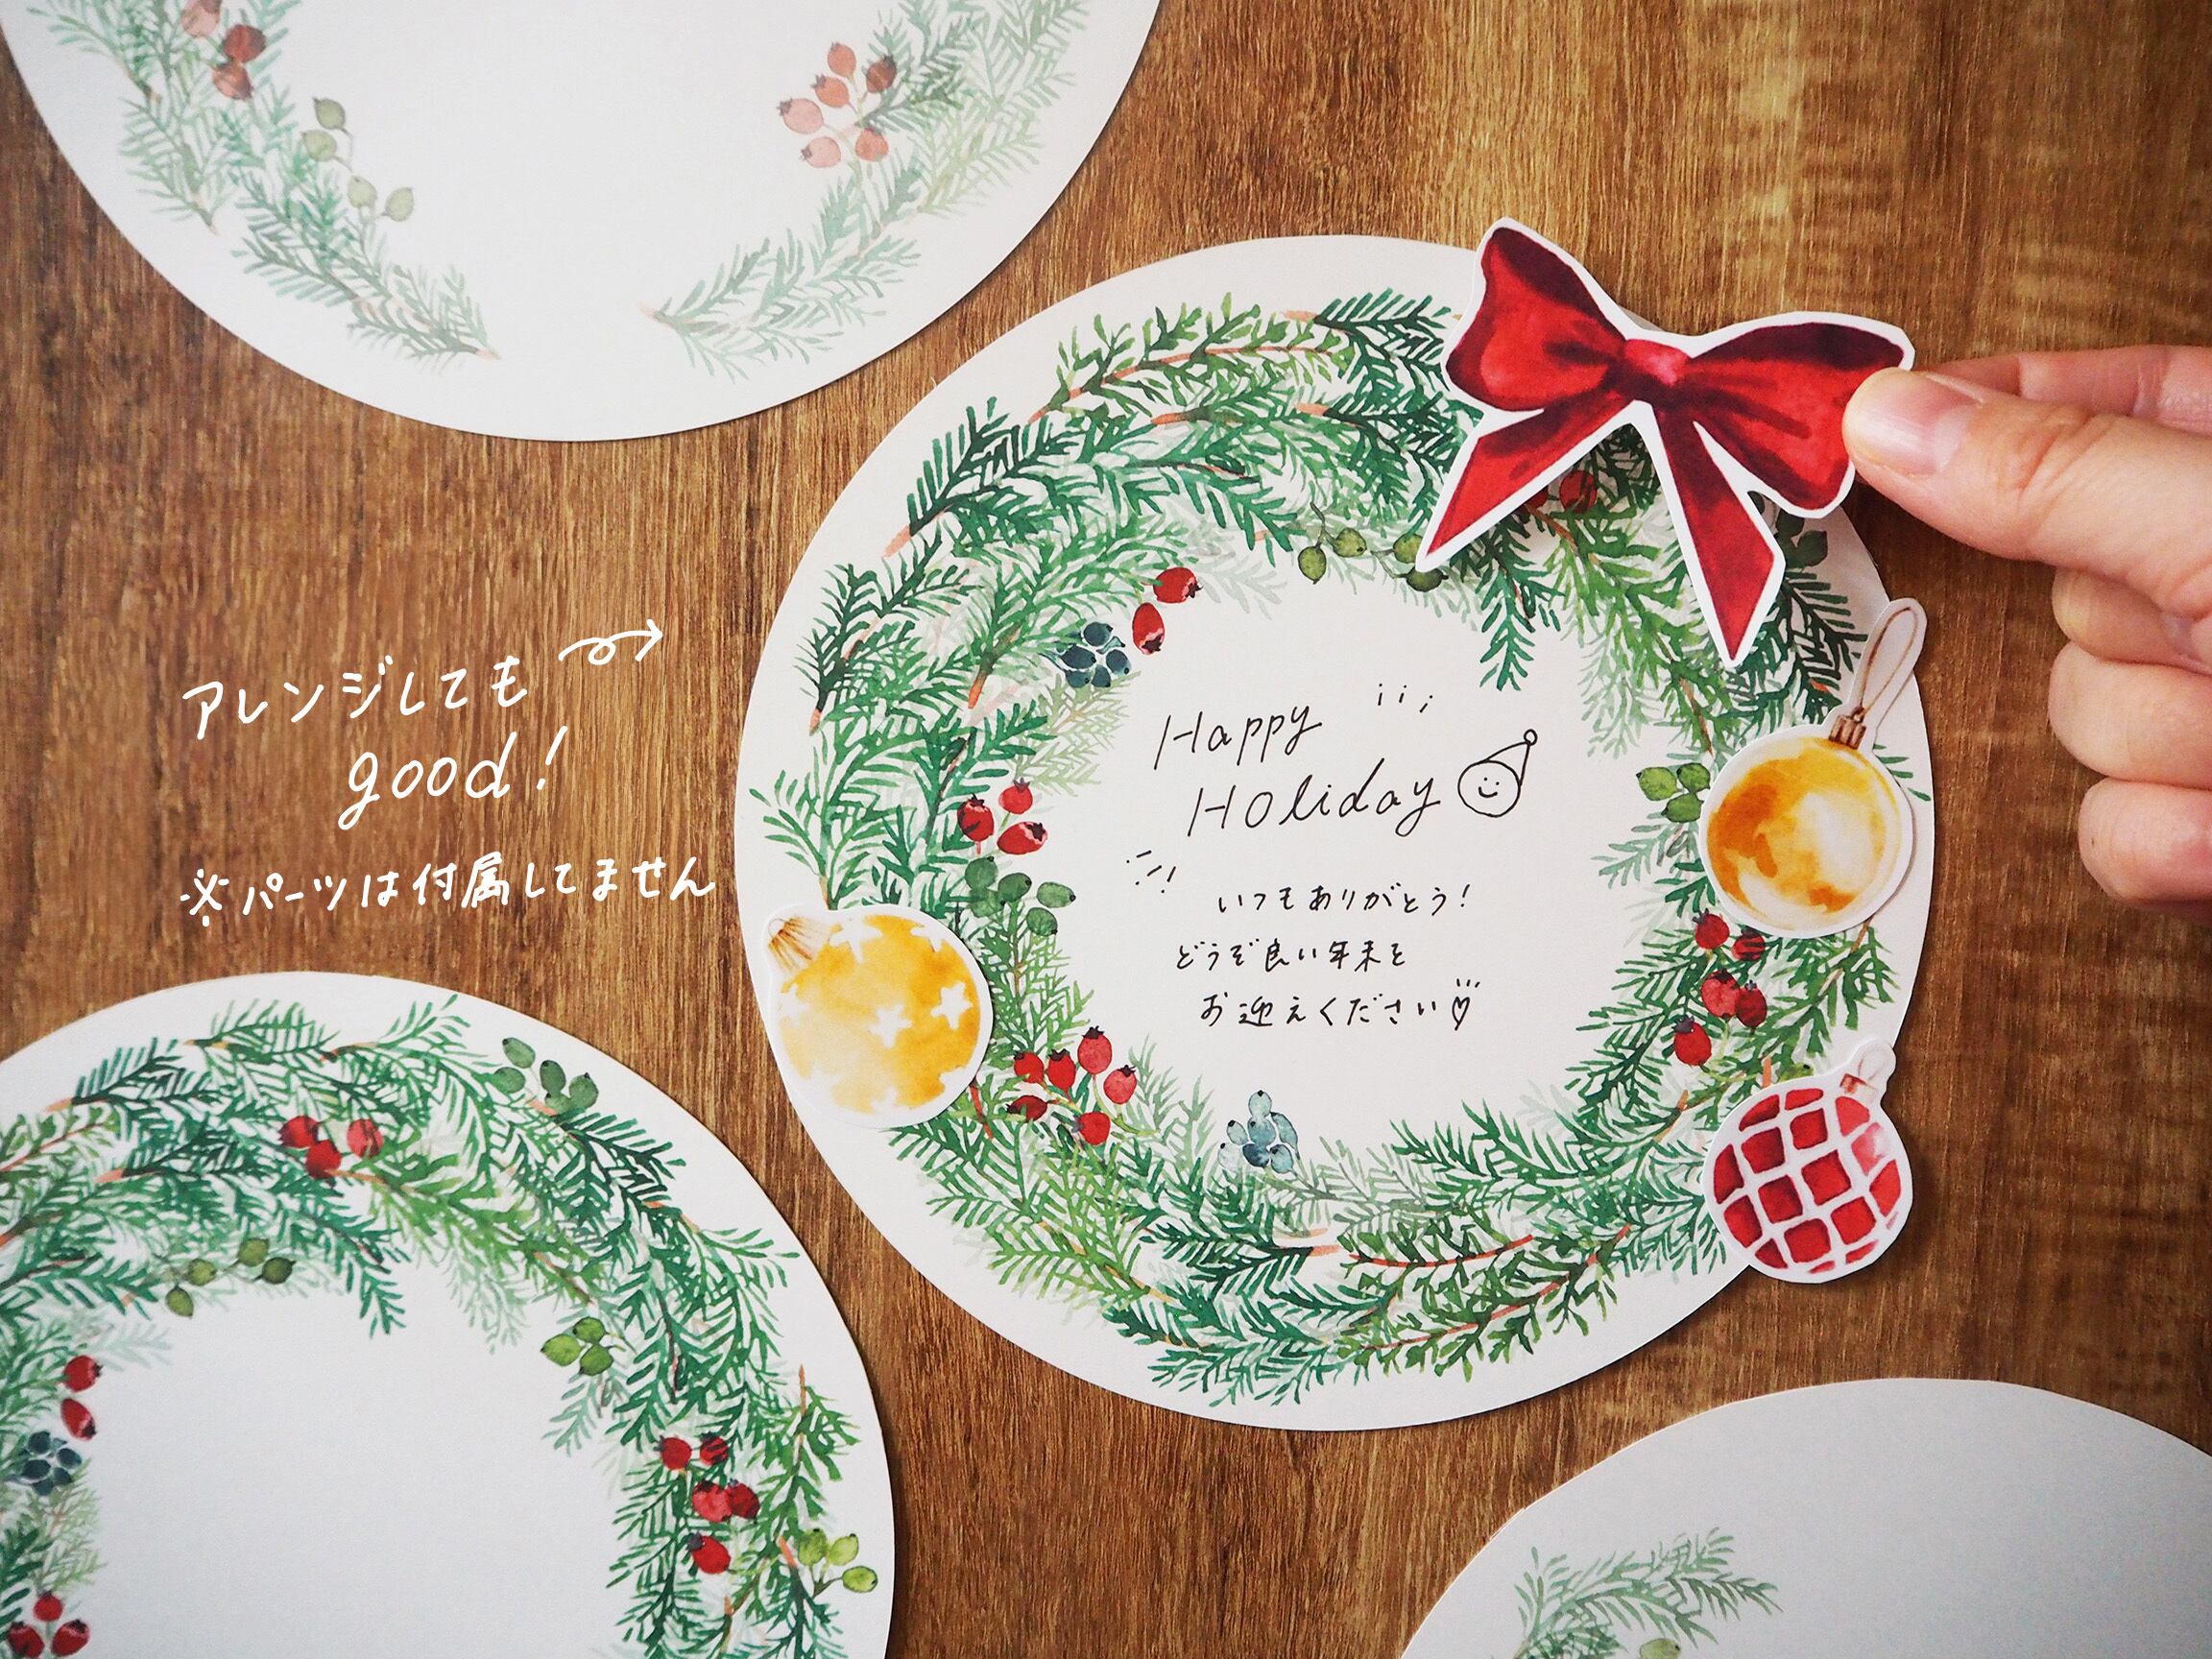 アレンジしても
good!
※パーツは付属してません
Happy
Holiday
いつもありがとう!
どうぞ良い年末を
お迎えください♡